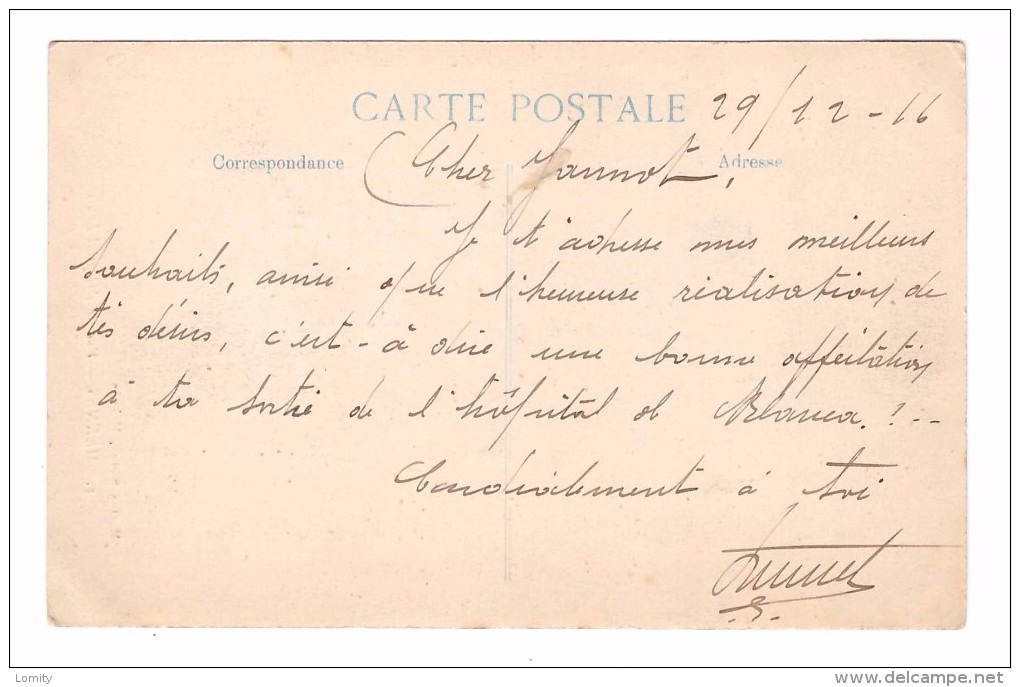 CARTE POSTALE 29/12-16
Correspondance Adresse
Cher Jannot,
Je t'adresse mes meilleurs
souhaits, ainsi que l'heureuse réalisation de
tes désirs, c'est-à dire une bonne affectation
à ta sortie de l'hôpital de Blanca!--
Cordialement à toi
Lomity
www.delcampe.net